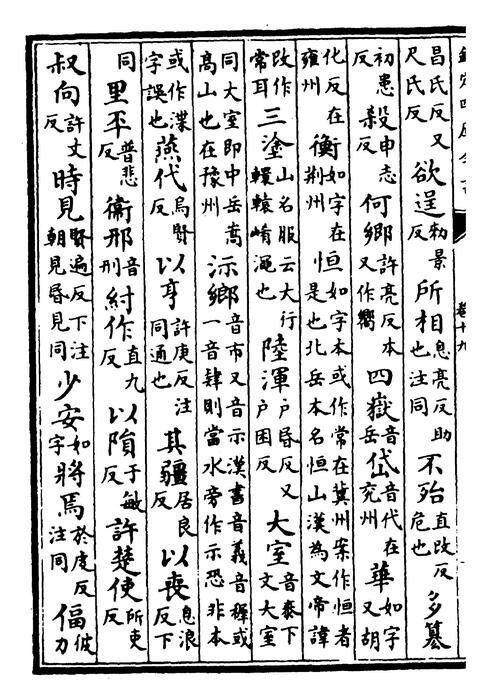 欽定四庫全書 卷十九
昌氏反又尺氏反欲逞勑景反所相息亮反助也注同不殆直改反危也多篡
初患反殺申志反何鄉許亮反本又作嚮四嶽音岳岱音代在兖州華如字又胡
化反在雍州衡如字在荆州恒如字本或作常在冀州案作恒者是也北岳本名恒山漢為文帝諱
改作常耳三塗山名服云大行轘轅崤澠也陸渾户昏反又户困反大室音泰下文大室
同大室即中岳嵩髙山也在豫州沶鄉音市又音示漢書音義音穉或一音肄則當水旁作示恐非本
或作渫字誤也燕代烏賢反以亨許庚反注同通也其疆居良反以喪息浪反下
同里丕普悲反衞邢音刑紂作直九反以隕于敏反許楚使所吏反
叔向許丈反時見賢遍反下注朝見昏見同少安如字將焉於虔反注同偪彼力